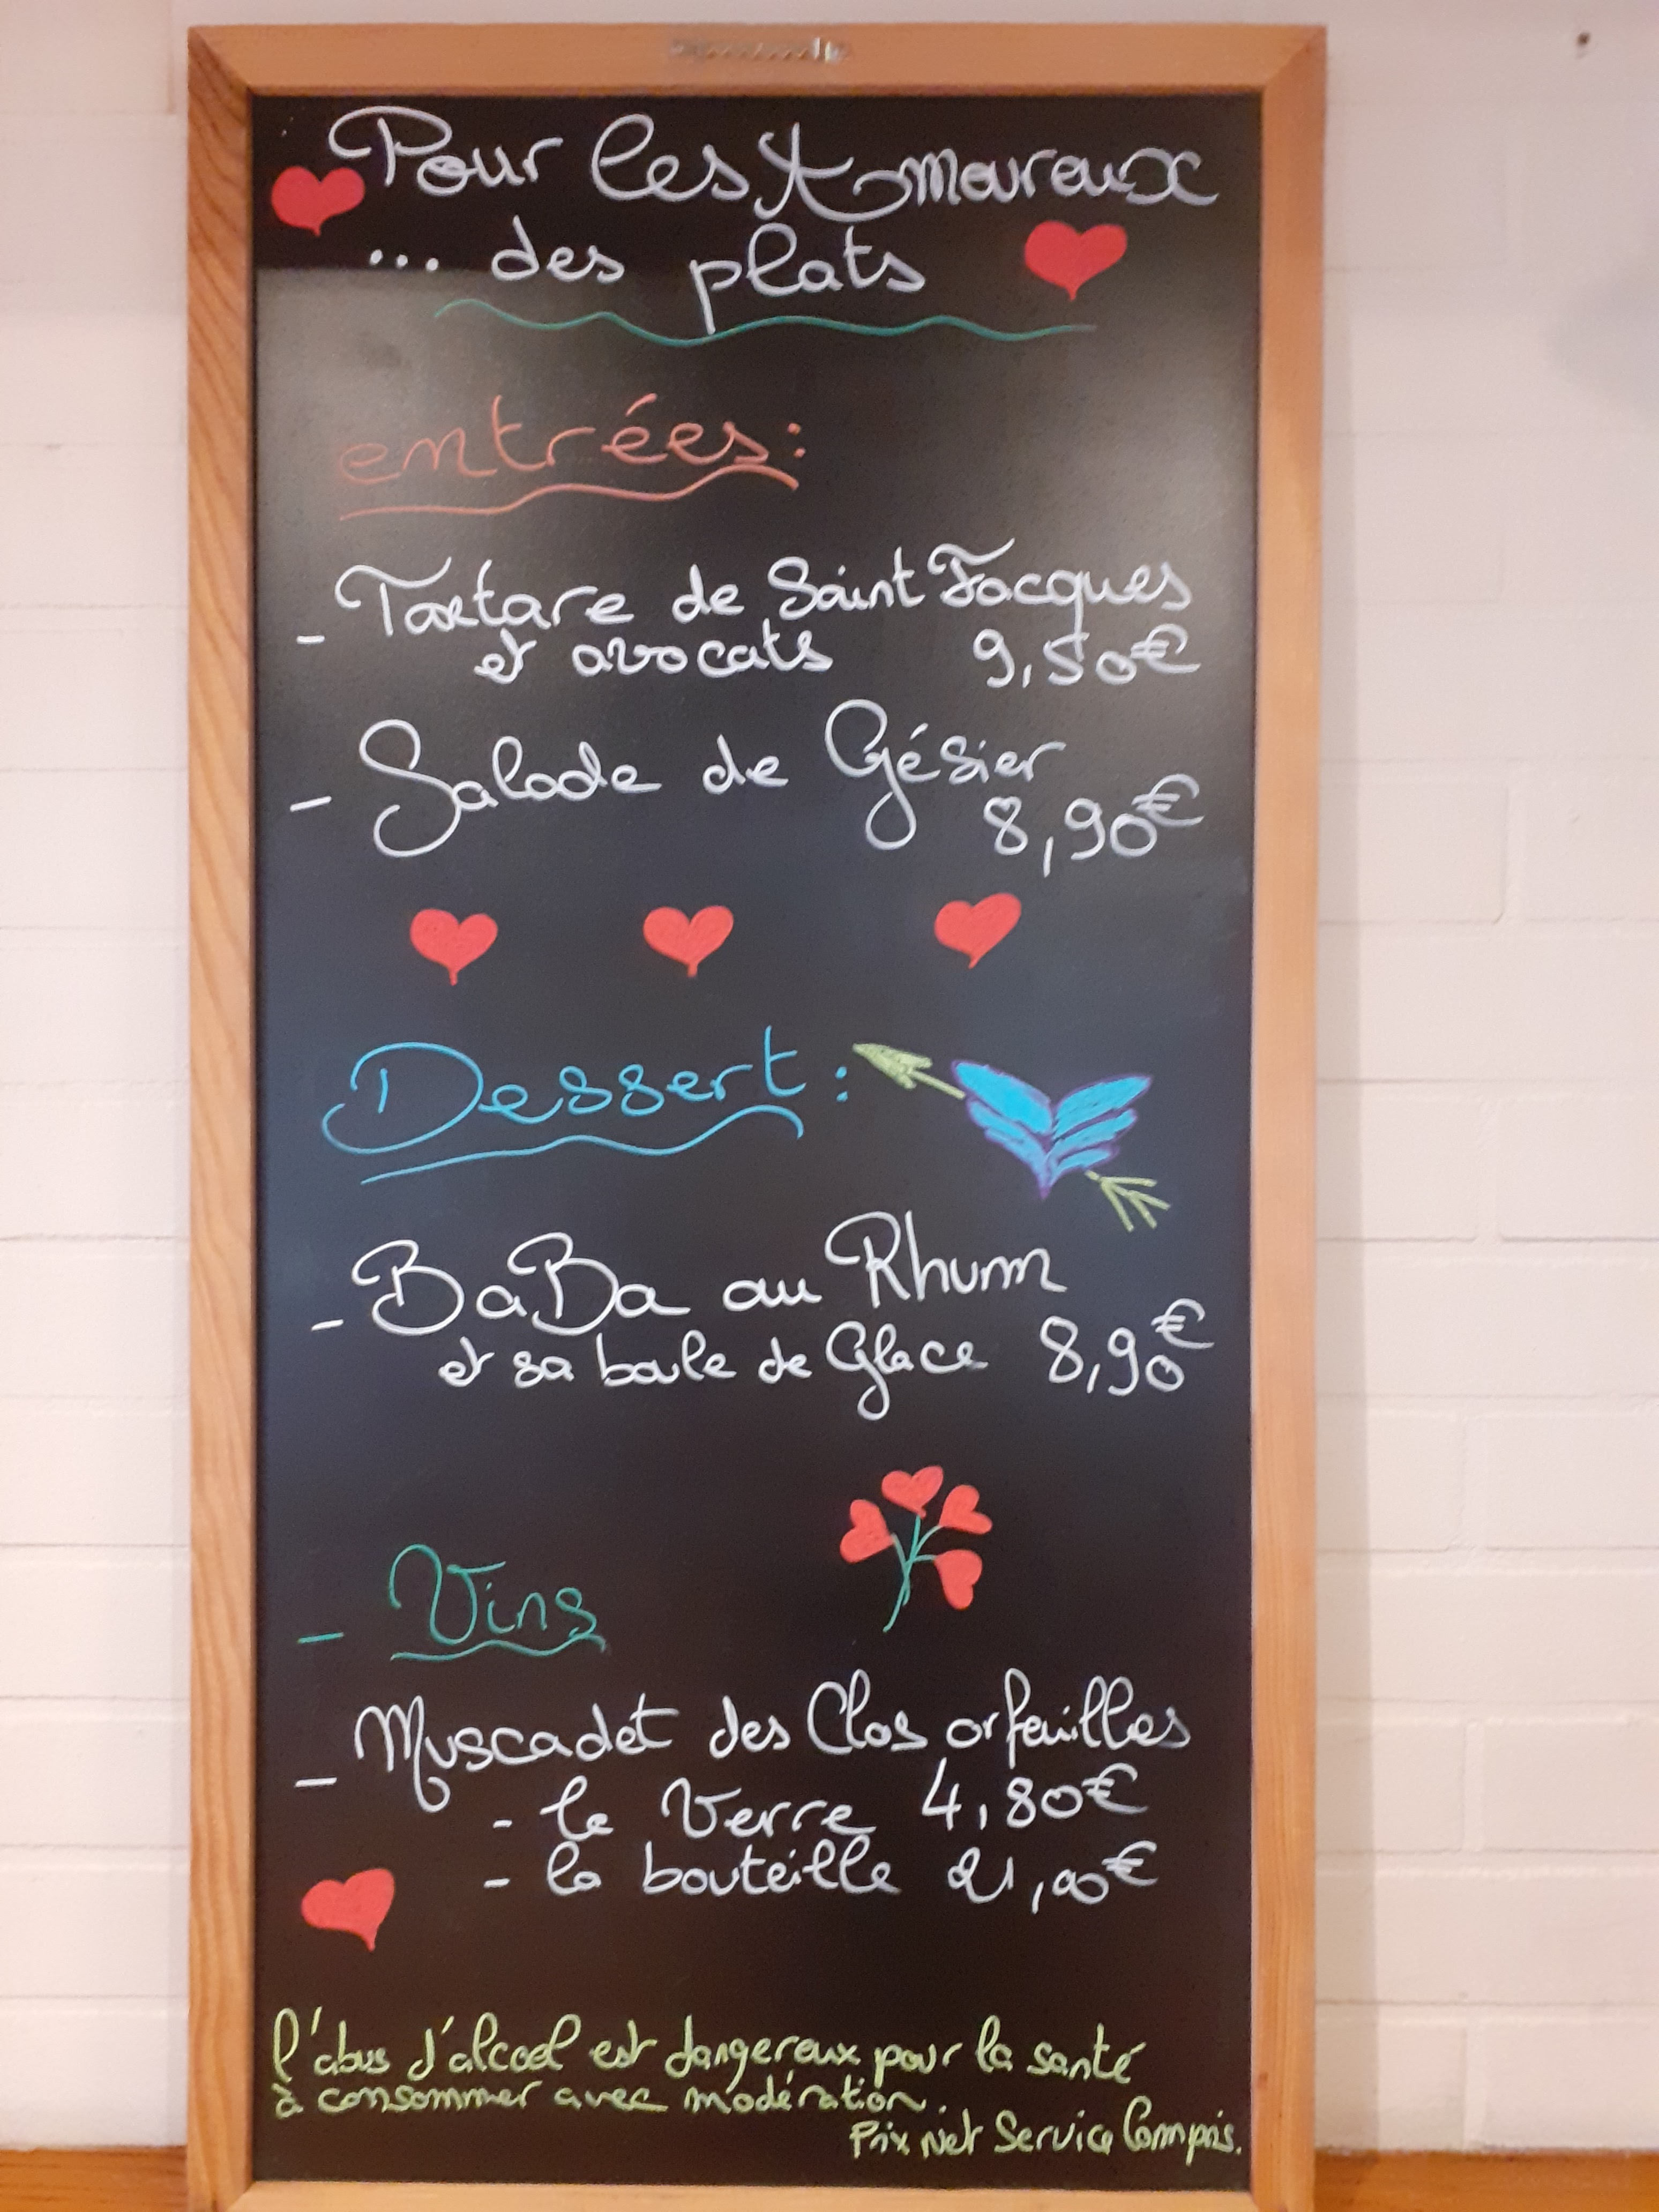 Pour les Amoureux
... des plats
entrées:
- Tartare de Saint Jacques
et avocats 9,50€
- Salade de Gésier
8,90€
Dessert:
- BaBa au Rhum
et sa boule de Glace 8,90€
- Vins
- Muscadet des Clos orfeuilles
- le Verre 4,80€
- la bouteille 21,00€
l'abus d'alcool est dangereux pour la santé
à consommer avec modération.
Prix Net Service Compris.